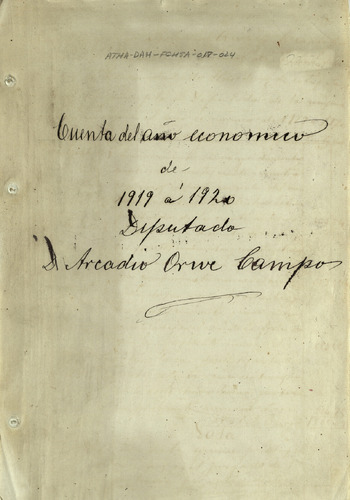 ATHA-DAH-FCMTA-018-024
Cuenta del año economico
de
1919 á 1920
Diputado
D Arcadio Orive Campo